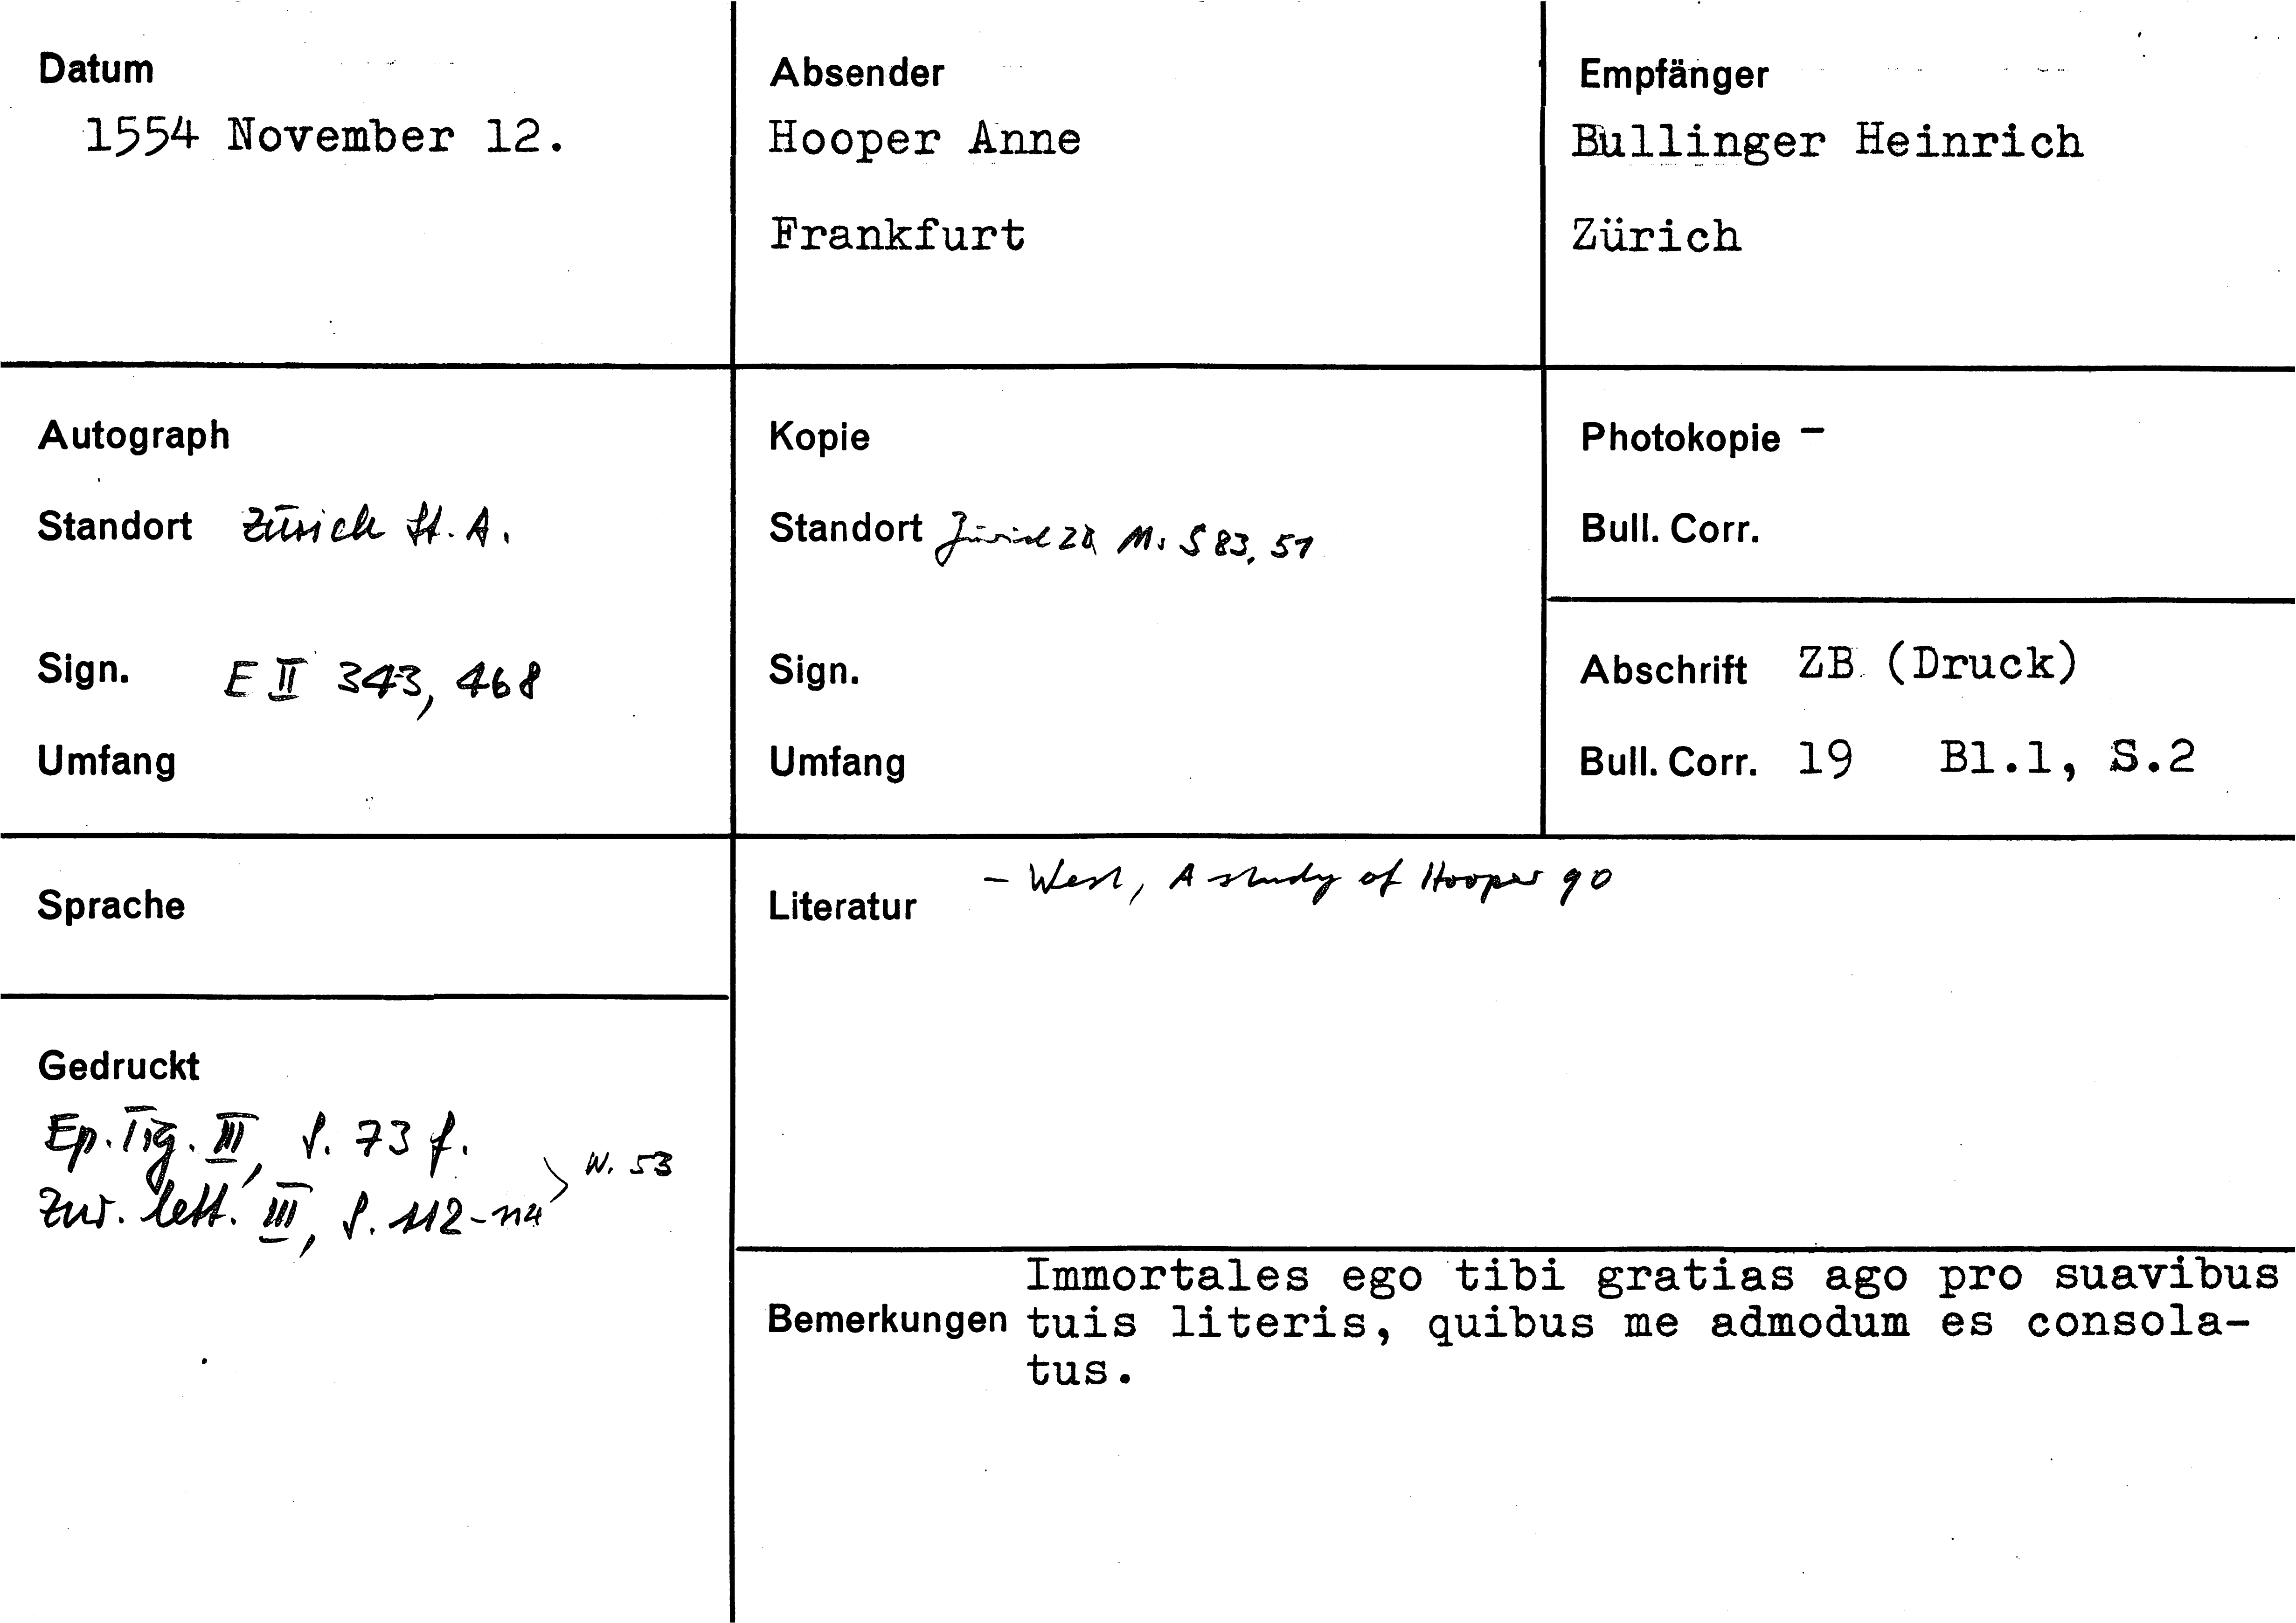 Datum
1554 November 12.
Absender
Hooper Anne
Frankfurt
Empfänger
Bullinger Heinrich
Zürich
Autograph
Standort Zürich St. A.
Sign. E II 343, 468
Umfang
Kopie
Standort Zürich ZB Ms S 83, 51
Sign.
Umfang
Photokopie -
Bull. Corr.
Abschrift ZB (Druck)
Bull. Corr. 19 Bl.1, S.2
Sprache
Literatur - West, A study of Hooper 90
Gedruckt
Ep. Tig. III, S. 73 f.
Zur. lett. III, S. 112-114
N. 53
Bemerkungen
Immortales ego tibi gratias ago pro suavibus
tuis literis, quibus me admodum es consola-
tus.